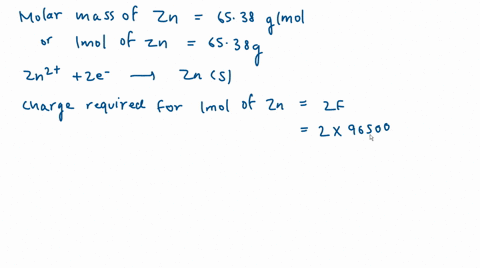 Molar mass of Zn = 65.38 g/mol
or 1mol of Zn = 65.38g
Zn²⁺ + 2e⁻ ⟶ Zn (s)
Charge required for 1mol of Zn = 2F
= 2 × 96500